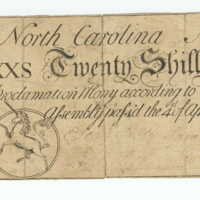 North Carolina N
XXS Twenty Shill
Proclamation Mony according to
Assembly pass'd the 4th of Ap